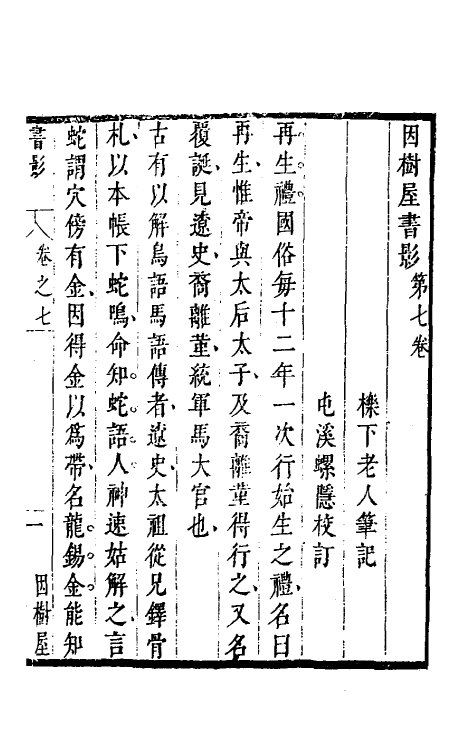 因樹屋書影第七卷
櫟下老人筆記
屯溪螺隱校訂
再生禮國俗每十二年一次行始生之禮名曰
再生惟帝與太后太子及裔離堇得行之又名
覆誕見遼史裔離堇統軍馬大官也
古有以解鳥語馬語傳者遼史太祖從兄鐸骨
札以本帳下蛇鳴命知蛇語人神速姑解之言
蛇謂穴傍有金因得金以爲帶名龍錫金能知
書影
卷之七
一
因樹屋